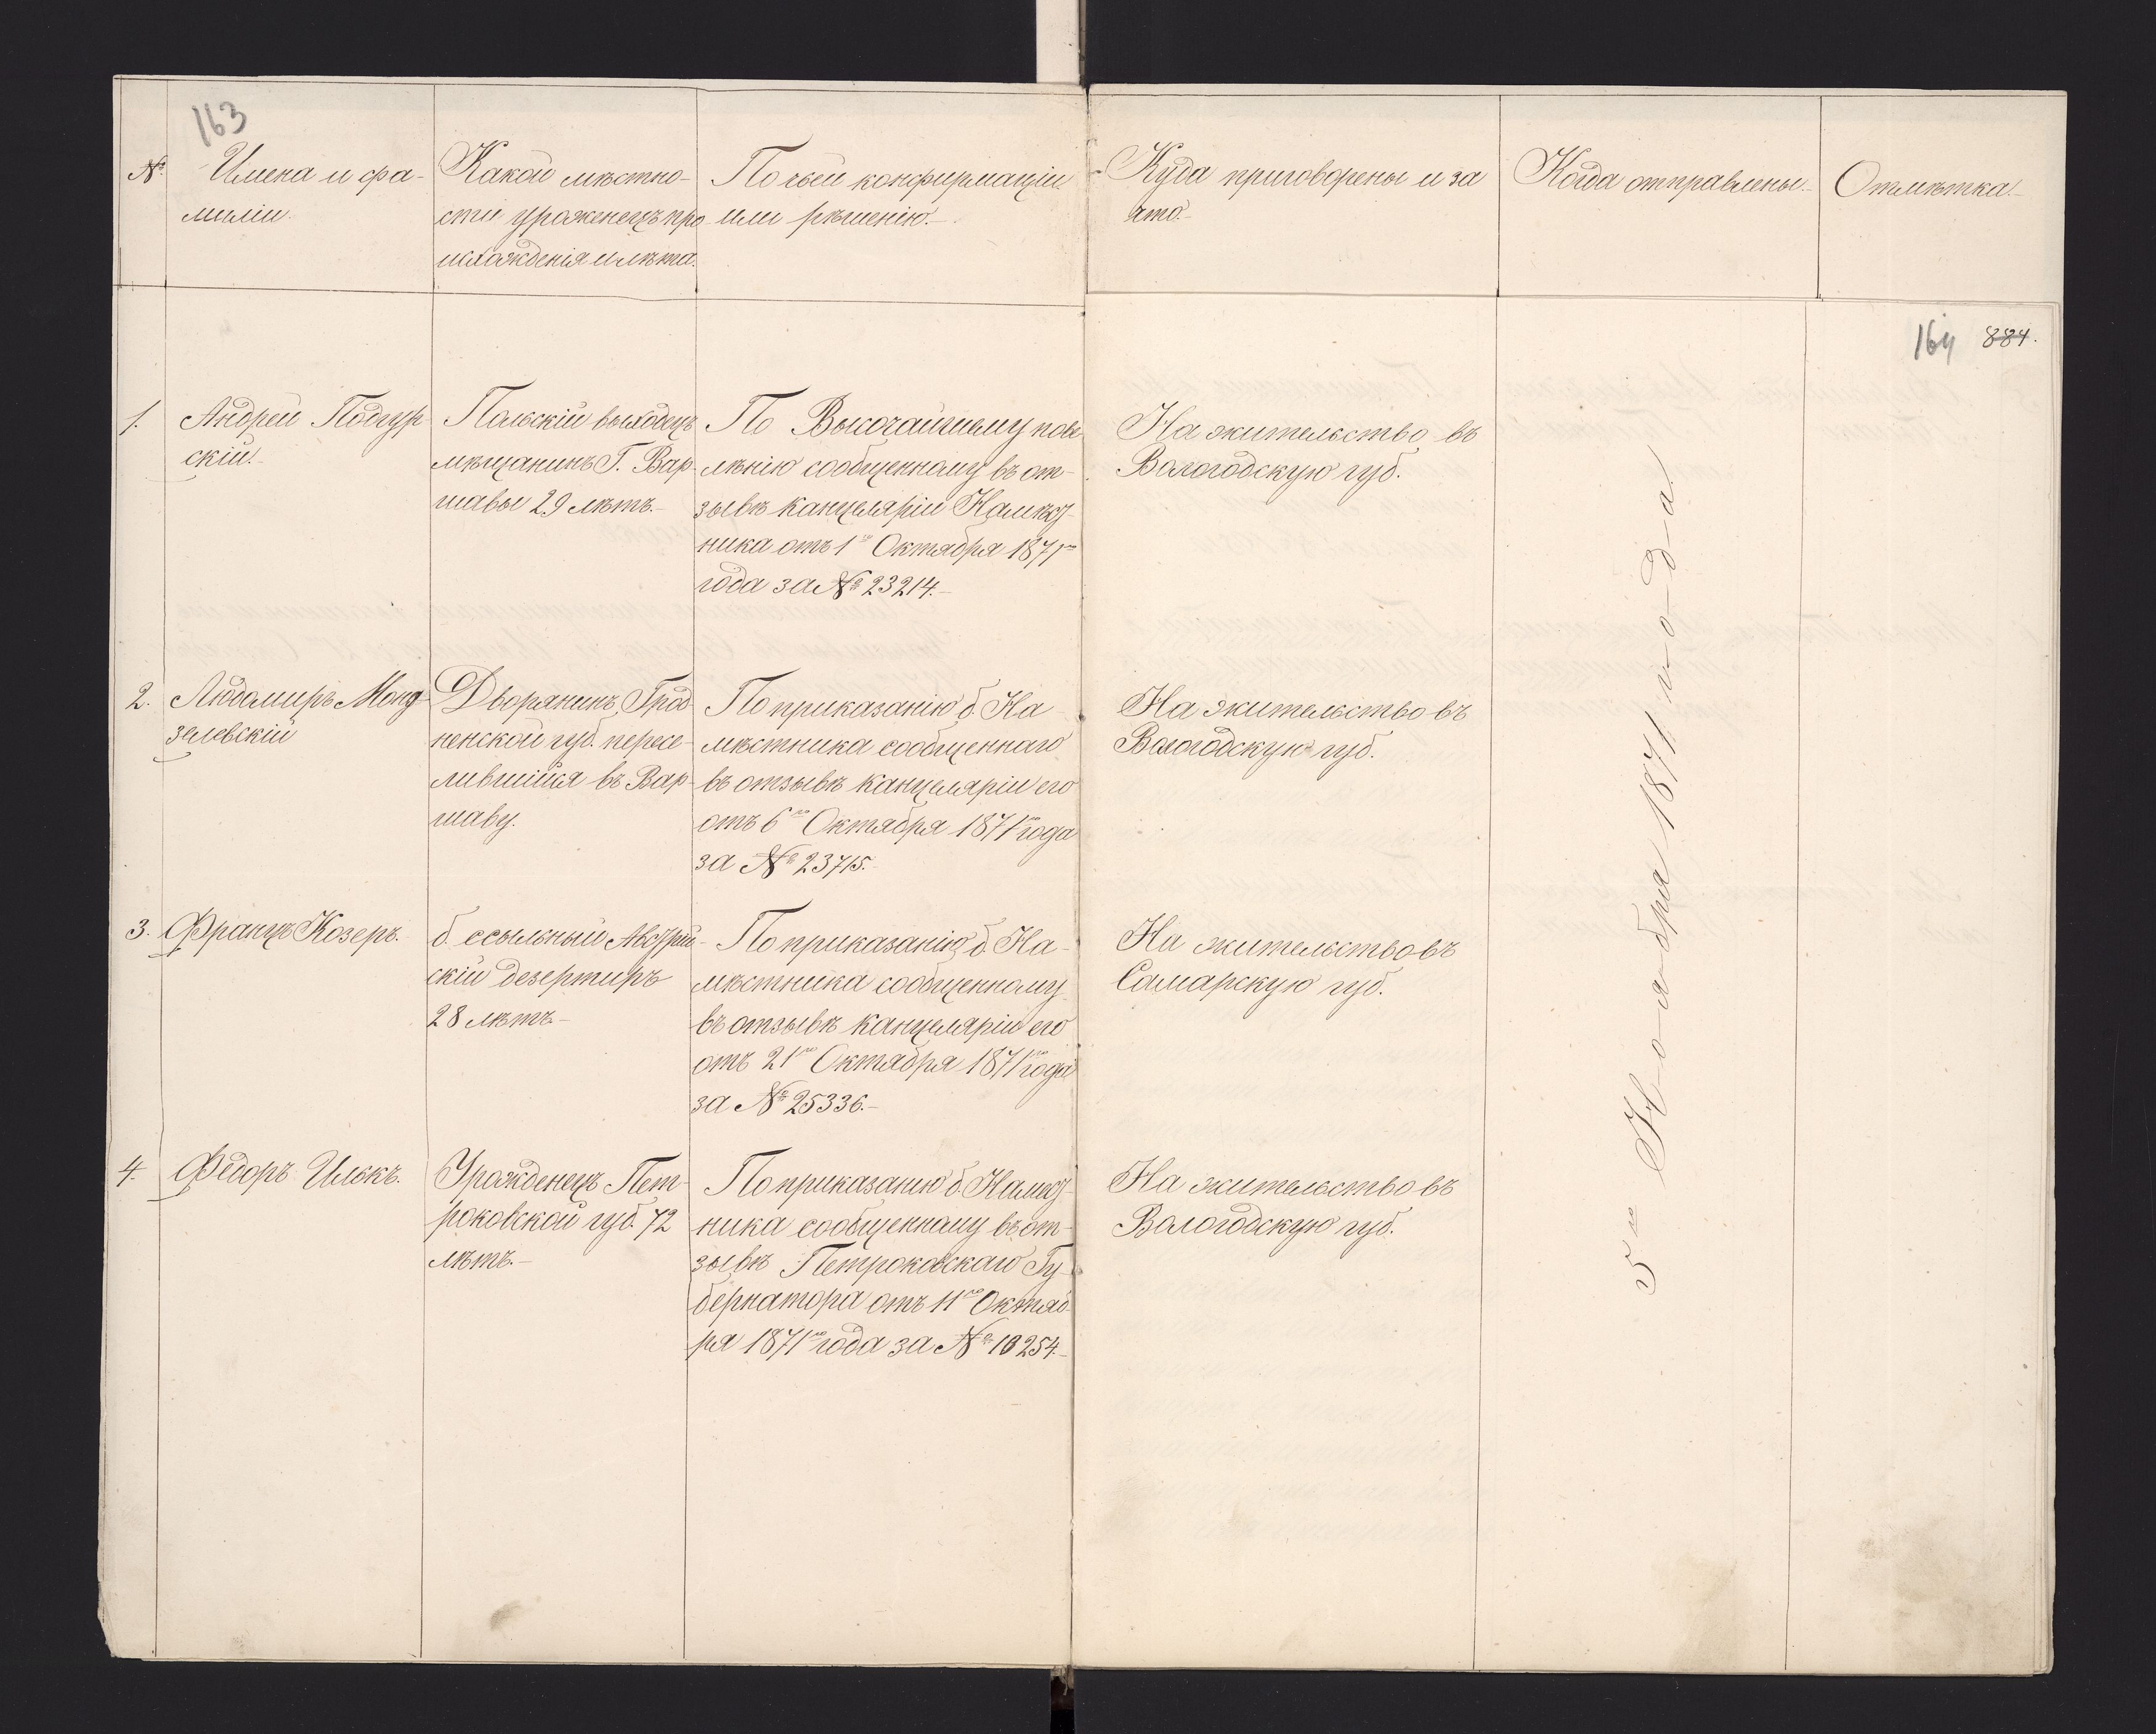 163
№
Имена и фа-
миліи.
Какой мѣстно-
сти уроженецъ про
исхожденія и лѣта.
По чьей конфирмаціи
или рѣшенію.
Куда приговорены и за
что.
Когда отправлены.
Отмѣтка.
164 884.
1.
Андрей Подгур
скій.
Польскій выходецъ
мѣщанинъ Г. Вар-
шавы 29 лѣтъ.
По Высочайшему пове
лѣнію сообщенному въ от-
зывѣ канцеляріи Намѣст-
ника отъ 1го Октября 1871го
года за № 23214.
На жительство въ
Вологодскую губ.
2.
Людомиръ Монд-
зелевскій
Дворянинъ Грод
ненской губ. пересе-
лившійся въ Вар-
шаву.
По приказанію б. На
мѣстника сообщеннаго
въ отзывѣ канцеляріи его
отъ 6го Октября 1871го года
за № 23715.
На жительство въ
Вологодскую губ.
3.
Францъ Козеръ.
б. ссыльный Австрій-
скій дезертиръ
28 лѣтъ.
По приказанію б. На-
мѣстника сообщенному
въ отзывѣ канцеляріи его
отъ 21го Октября 1871го года
за № 25336.
На жительство въ
Самарскую губ.
4.
Федоръ Илькъ.
Урожденецъ Пет-
роковской губ. 72
лѣтъ.
По приказанію б. Намѣст-
ника сообщенному въ от-
зывѣ Петроковскаго Гу-
бернатора отъ 11го Октяб-
ря 1871го года за № 10254.
На жительство въ
Вологодскую губ.
5го Ноября 1871 года